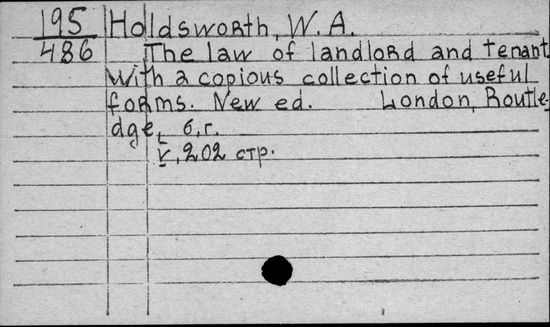 195 Holdsworth, W. A.
486 The law of landlord and tenant
with a copious collection of useful
forms. New ed. London, Routle
dge, б.г.
V, 202 стр.